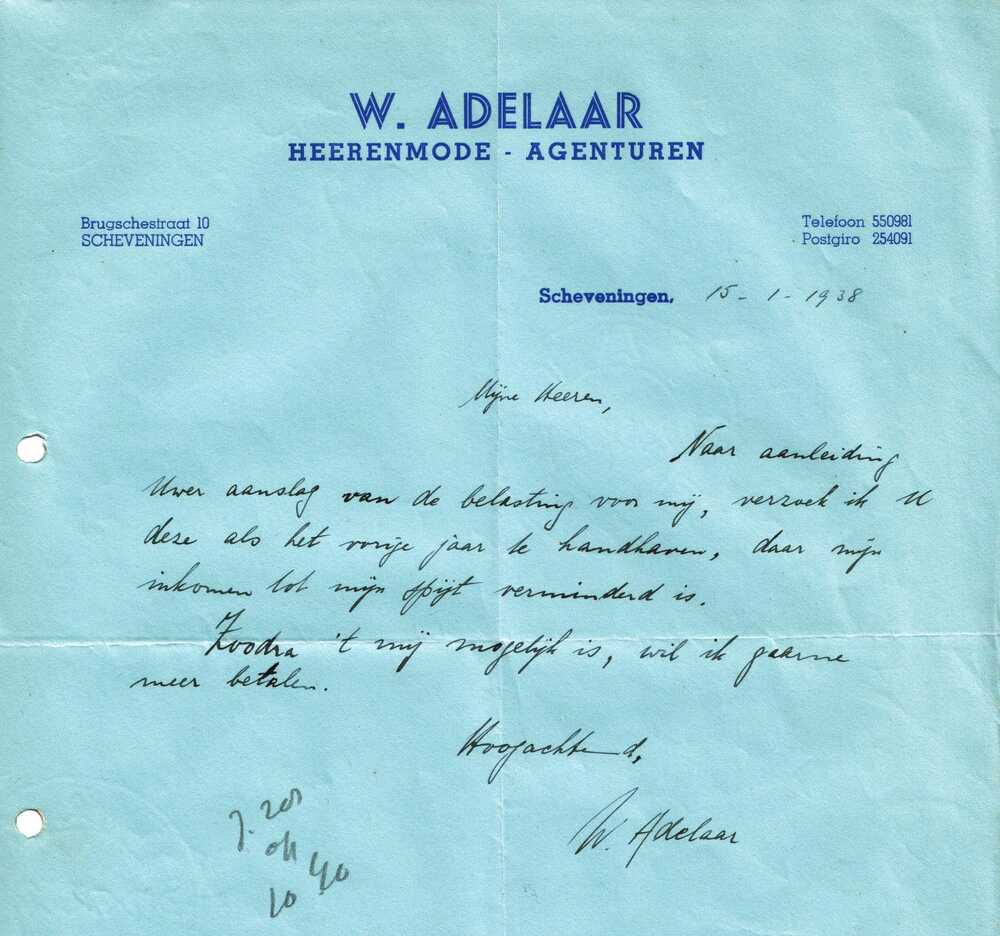 W. ADELAAR
HEERENMODE - AGENTUREN
Brugschestraat 10
SCHEVENINGEN
Telefoon 550981
Postgiro 254091
Scheveningen, 15-1-1938
Mijne Heeren,
Naar aanleiding
Uwer aanslag van de belasting voor mij, verzoek ik U
deze als het vorige jaar te handhaven, daar mijn
inkomen tot mijn spijt verminderd is.
Zoodra 't mij mogelijk is, wil ik gaarne
meer betalen.
Hoogachtend,
W. Adelaar